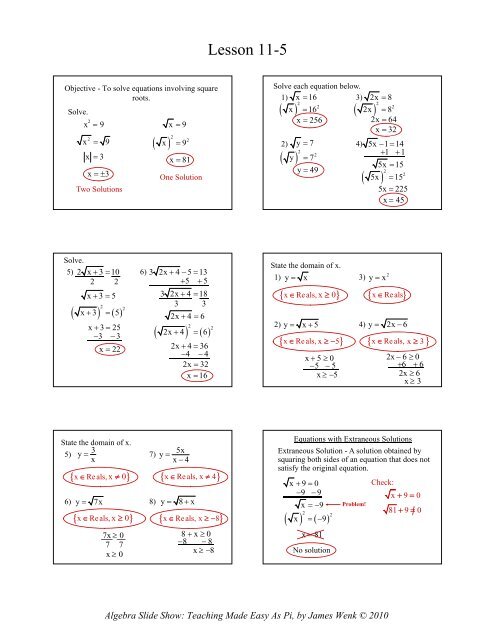 Lesson 11-5
Objective - To solve equations involving square
roots.
Solve.
x² = 9
√x² = √9
|x| = 3
x = ±3
Two Solutions
√x = 9
(√x)² = 9²
x = 81
One Solution
Solve each equation below.
1) √x = 16
(√x)² = 16²
x = 256
2) √y = 7
(√y)² = 7²
y = 49
3) √2x = 8
(√2x)² = 8²
2x = 64
x = 32
4) √5x − 1 = 14
+1 +1
√5x = 15
(√5x)² = 15²
5x = 225
x = 45
Solve.
5) 2√x + 3 = 10
2 2
√x + 3 = 5
(√x + 3)² = (5)²
x + 3 = 25
−3 − 3
x = 22
6) 3√2x + 4 − 5 = 13
+5 +5
3√2x + 4 = 18
3 3
√2x + 4 = 6
(√2x + 4)² = (6)²
2x + 4 = 36
−4 − 4
2x = 32
x = 16
State the domain of x.
1) y = √x
{x ∈ Reals, x ≥ 0}
3) y = x²
{x ∈ Reals}
2) y = √x + 5
{x ∈ Reals, x ≥ −5}
x + 5 ≥ 0
−5 − 5
x ≥ −5
4) y = √2x − 6
{x ∈ Reals, x ≥ 3}
2x − 6 ≥ 0
+6 + 6
2x ≥ 6
x ≥ 3
State the domain of x.
5) y = 3/x
{x ∈ Reals, x ≠ 0}
7) y = 5x/x − 4
{x ∈ Reals, x ≠ 4}
6) y = √7x
{x ∈ Reals, x ≥ 0}
7x ≥ 0
7 7
x ≥ 0
8) y = √8 + x
{x ∈ Reals, x ≥ −8}
8 + x ≥ 0
−8 − 8
x ≥ −8
Equations with Extraneous Solutions
Extraneous Solution - A solution obtained by
squaring both sides of an equation that does not
satisfy the original equation.
√x + 9 = 0
−9 − 9
√x = −9 ← Problem!
(√x)² = (−9)²
x = 81
No solution
Check:
√x + 9 = 0
√81 + 9 ≠ 0
Algebra Slide Show: Teaching Made Easy As Pi, by James Wenk © 2010